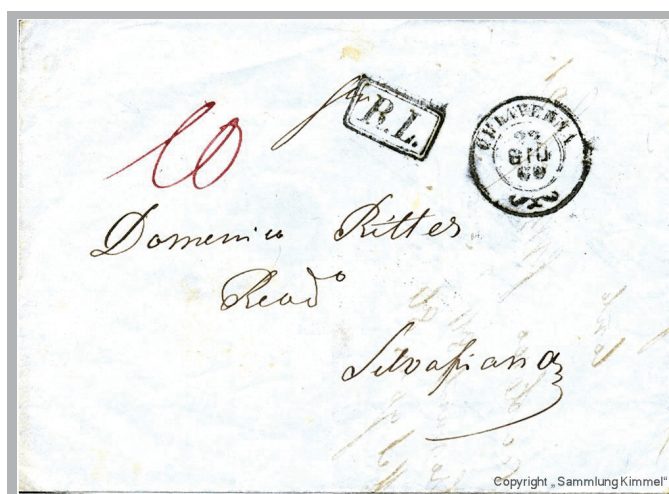 10
R.L.
CHIAVENNA
22
GIU
69
Domenico Ritter
Silvapiana
Copyright „Sammlung Kimmel